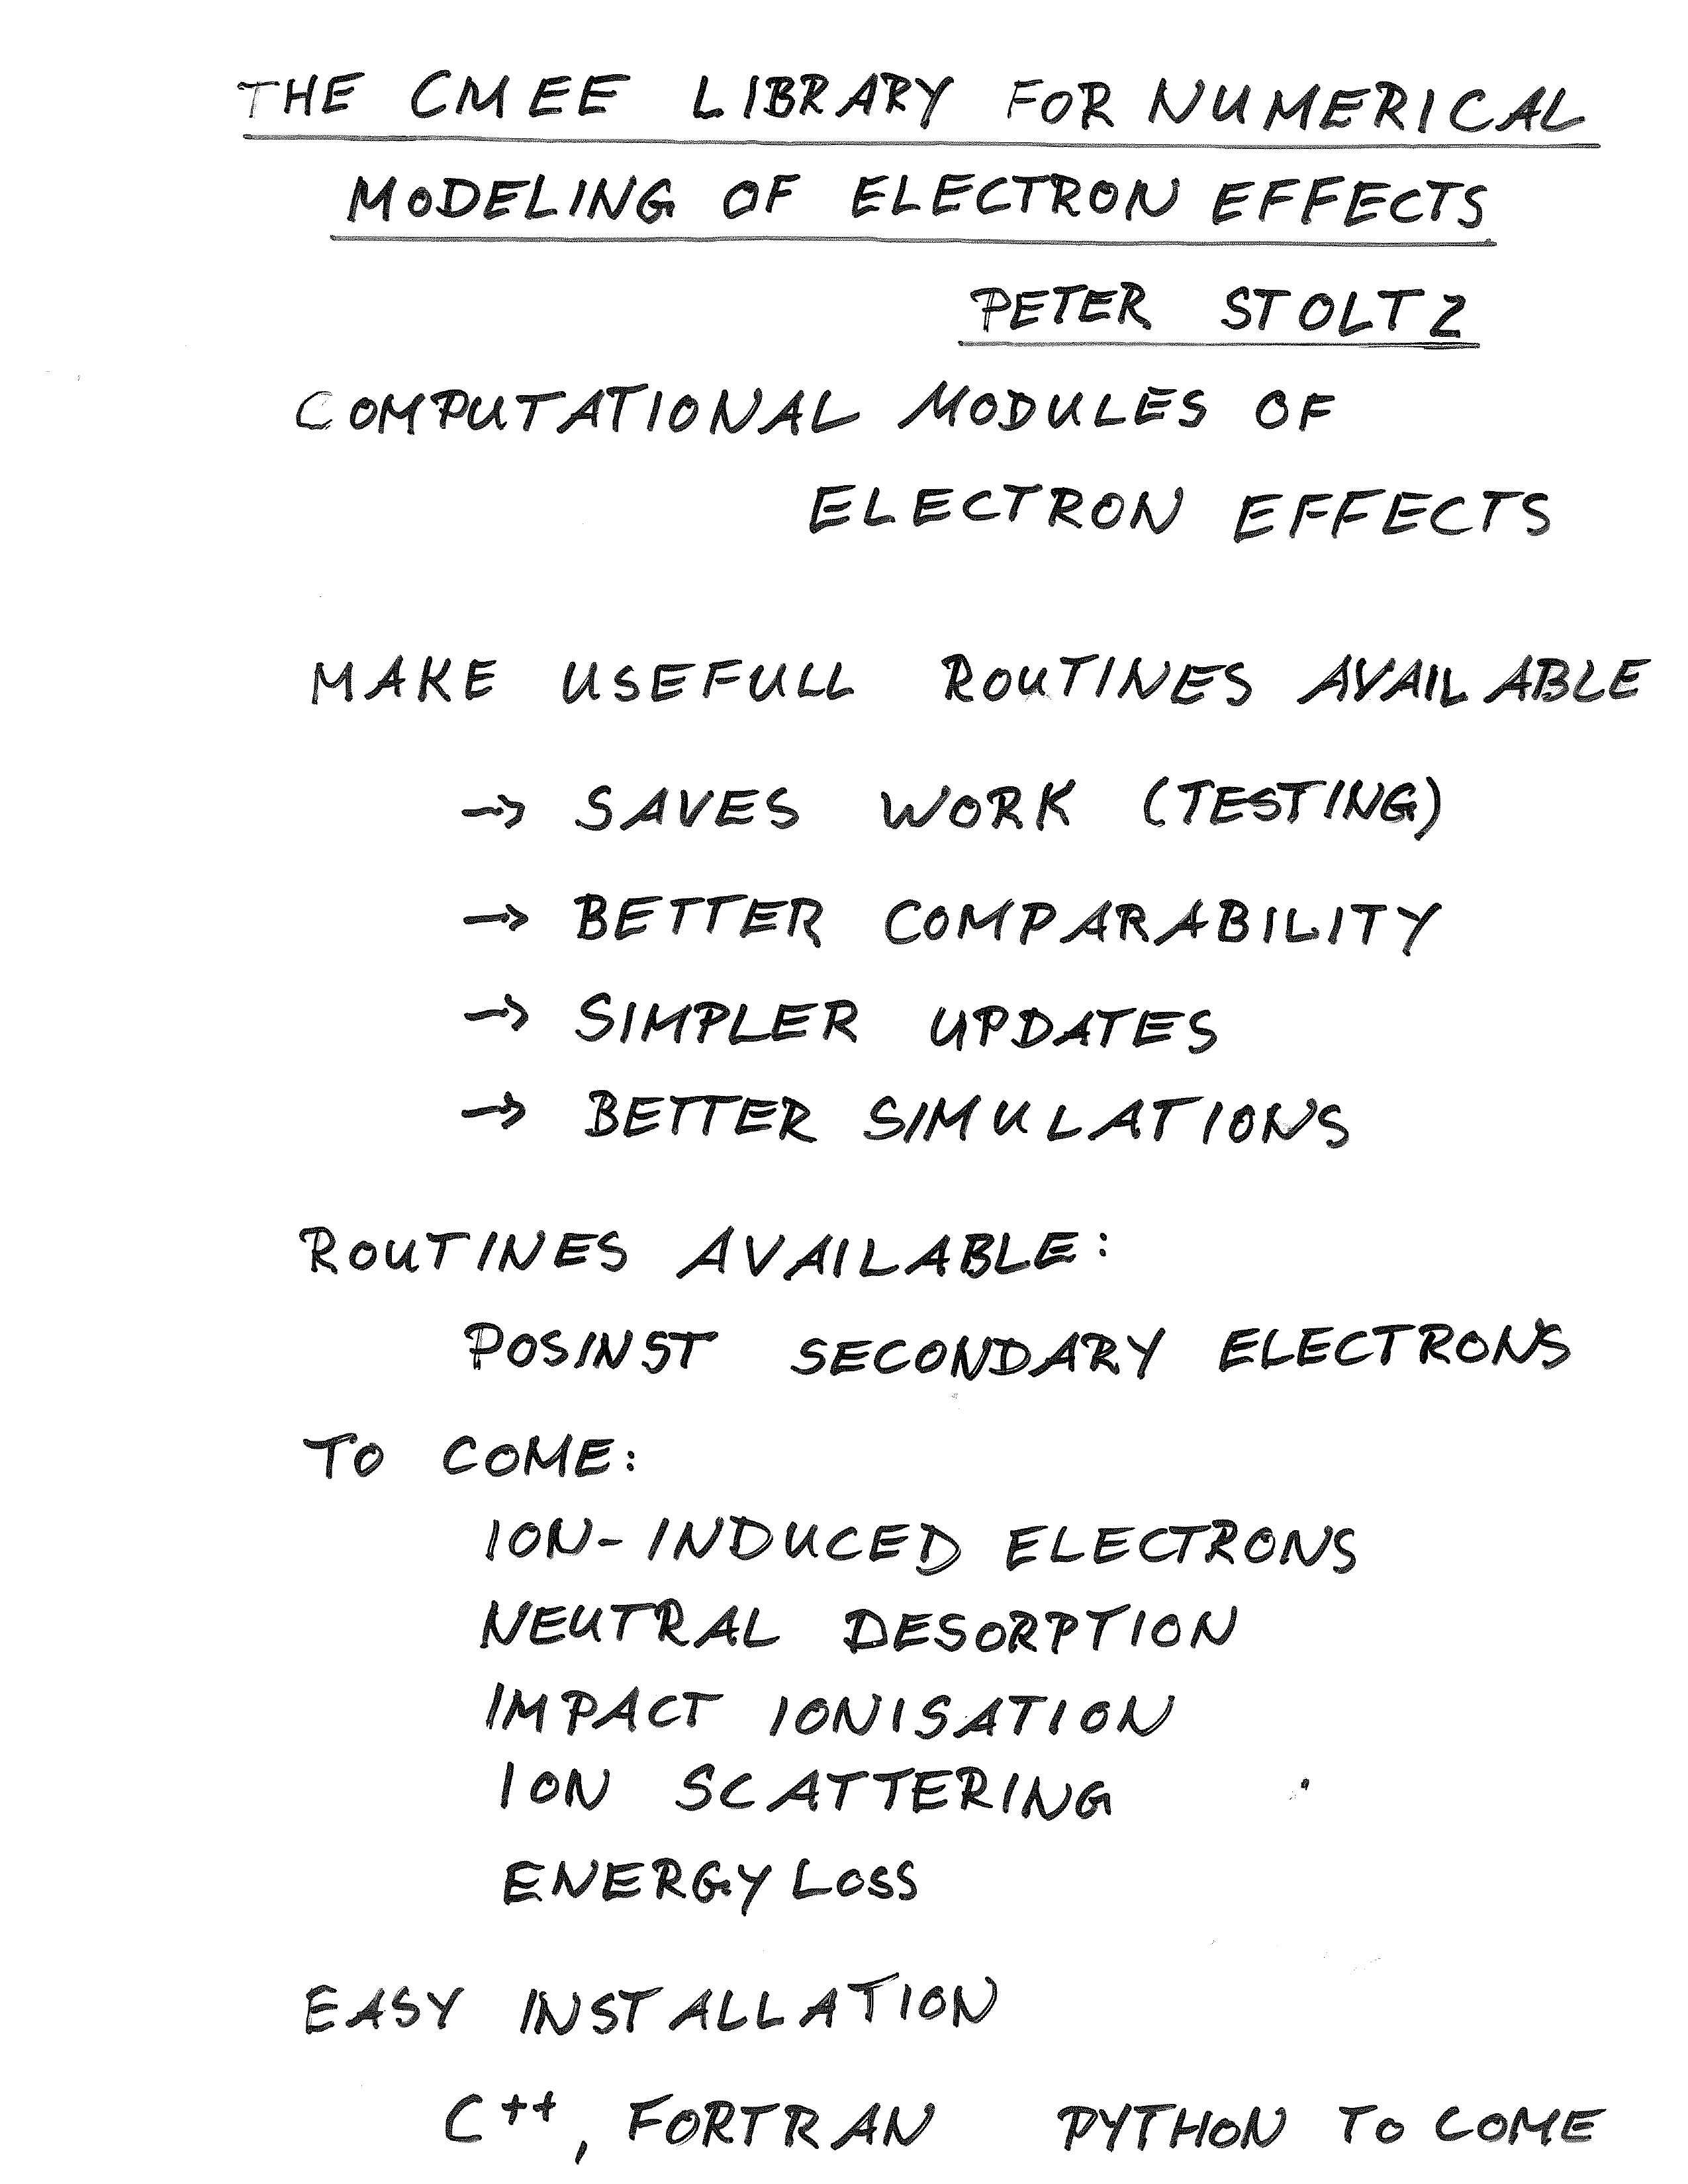 THE CMEE LIBRARY FOR NUMERICAL
MODELING OF ELECTRON EFFECTS
PETER STOLTZ
COMPUTATIONAL MODULES OF
ELECTRON EFFECTS
MAKE USEFULL ROUTINES AVAILABLE
→ SAVES WORK (TESTING)
→ BETTER COMPARABILITY
→ SIMPLER UPDATES
→ BETTER SIMULATIONS
ROUTINES AVAILABLE:
POSINST SECONDARY ELECTRONS
TO COME:
ION-INDUCED ELECTRONS
NEUTRAL DESORPTION
IMPACT IONISATION
ION SCATTERING
ENERGY LOSS
EASY INSTALLATION
C++, FORTRAN PYTHON TO COME